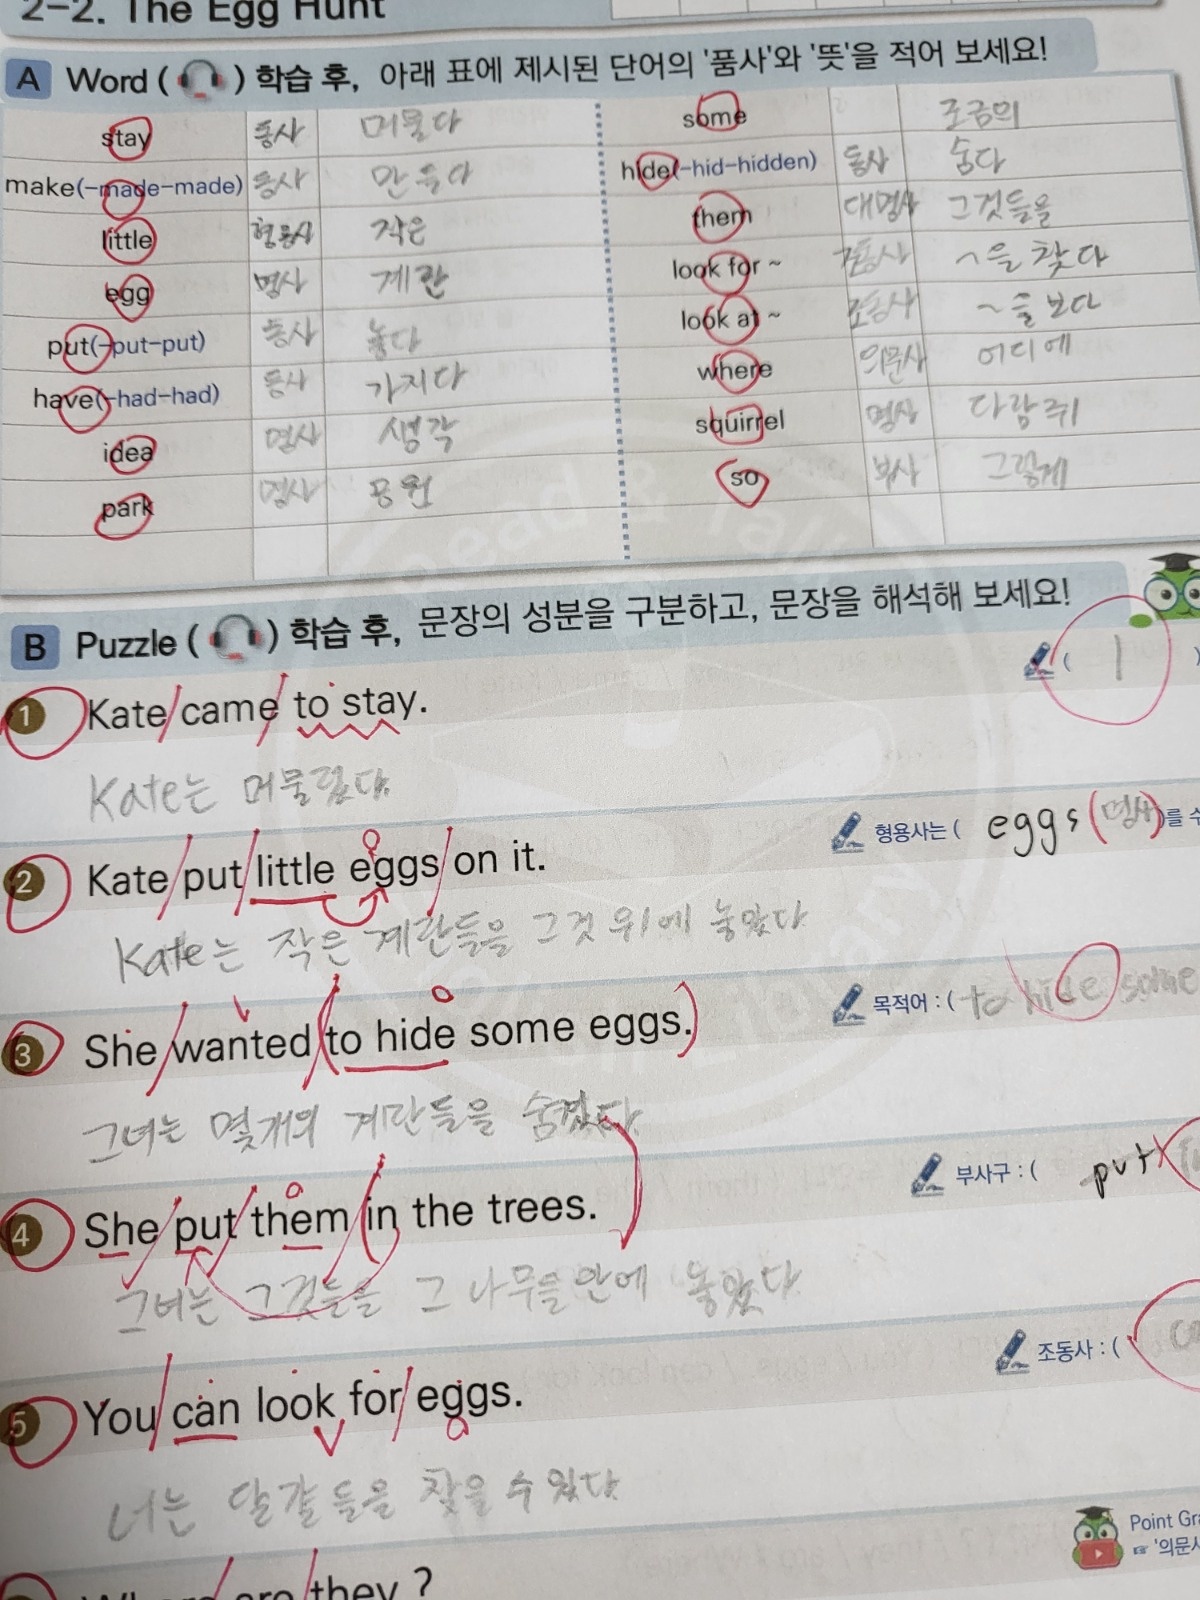 2-2. The Egg Hunt
A Word ( ) 학습 후, 아래 표에 제시된 단어의 '품사'와 '뜻'을 적어 보세요!
stay 동사 머물다
make(-made-made) 동사 만들다
little 형용사 작은
egg 명사 계란
put(-put-put) 동사 놓다
have(-had-had) 동사 가지다
idea 명사 생각
park 명사 공원
some 조금의
hide(-hid-hidden) 동사 숨다
them 대명사 그것들을
look for ~ ~을 찾다
look at ~ ~을 보다
where 의문사 어디에
squirrel 명사 다람쥐
so 부사 그렇게
B Puzzle ( ) 학습 후, 문장의 성분을 구분하고, 문장을 해석해 보세요!
1 Kate came to stay. ( 1 )
Kate는 머물렀다
2 Kate put little eggs on it. 형용사는 ( eggs (명사) )를 수
Kate는 작은 계란들을 그것 위에 놓았다
3 She wanted to hide some eggs. 목적어 : ( to hide some
그녀는 몇개의 계란들을 숨겼다
4 She put them in the trees. 부사구 : ( put
그녀는 그것들을 그 나무들 안에 놓았다
5 You can look for eggs. 조동사 : (
너는 달걀들을 찾을 수 있다
Point
Where are they ?